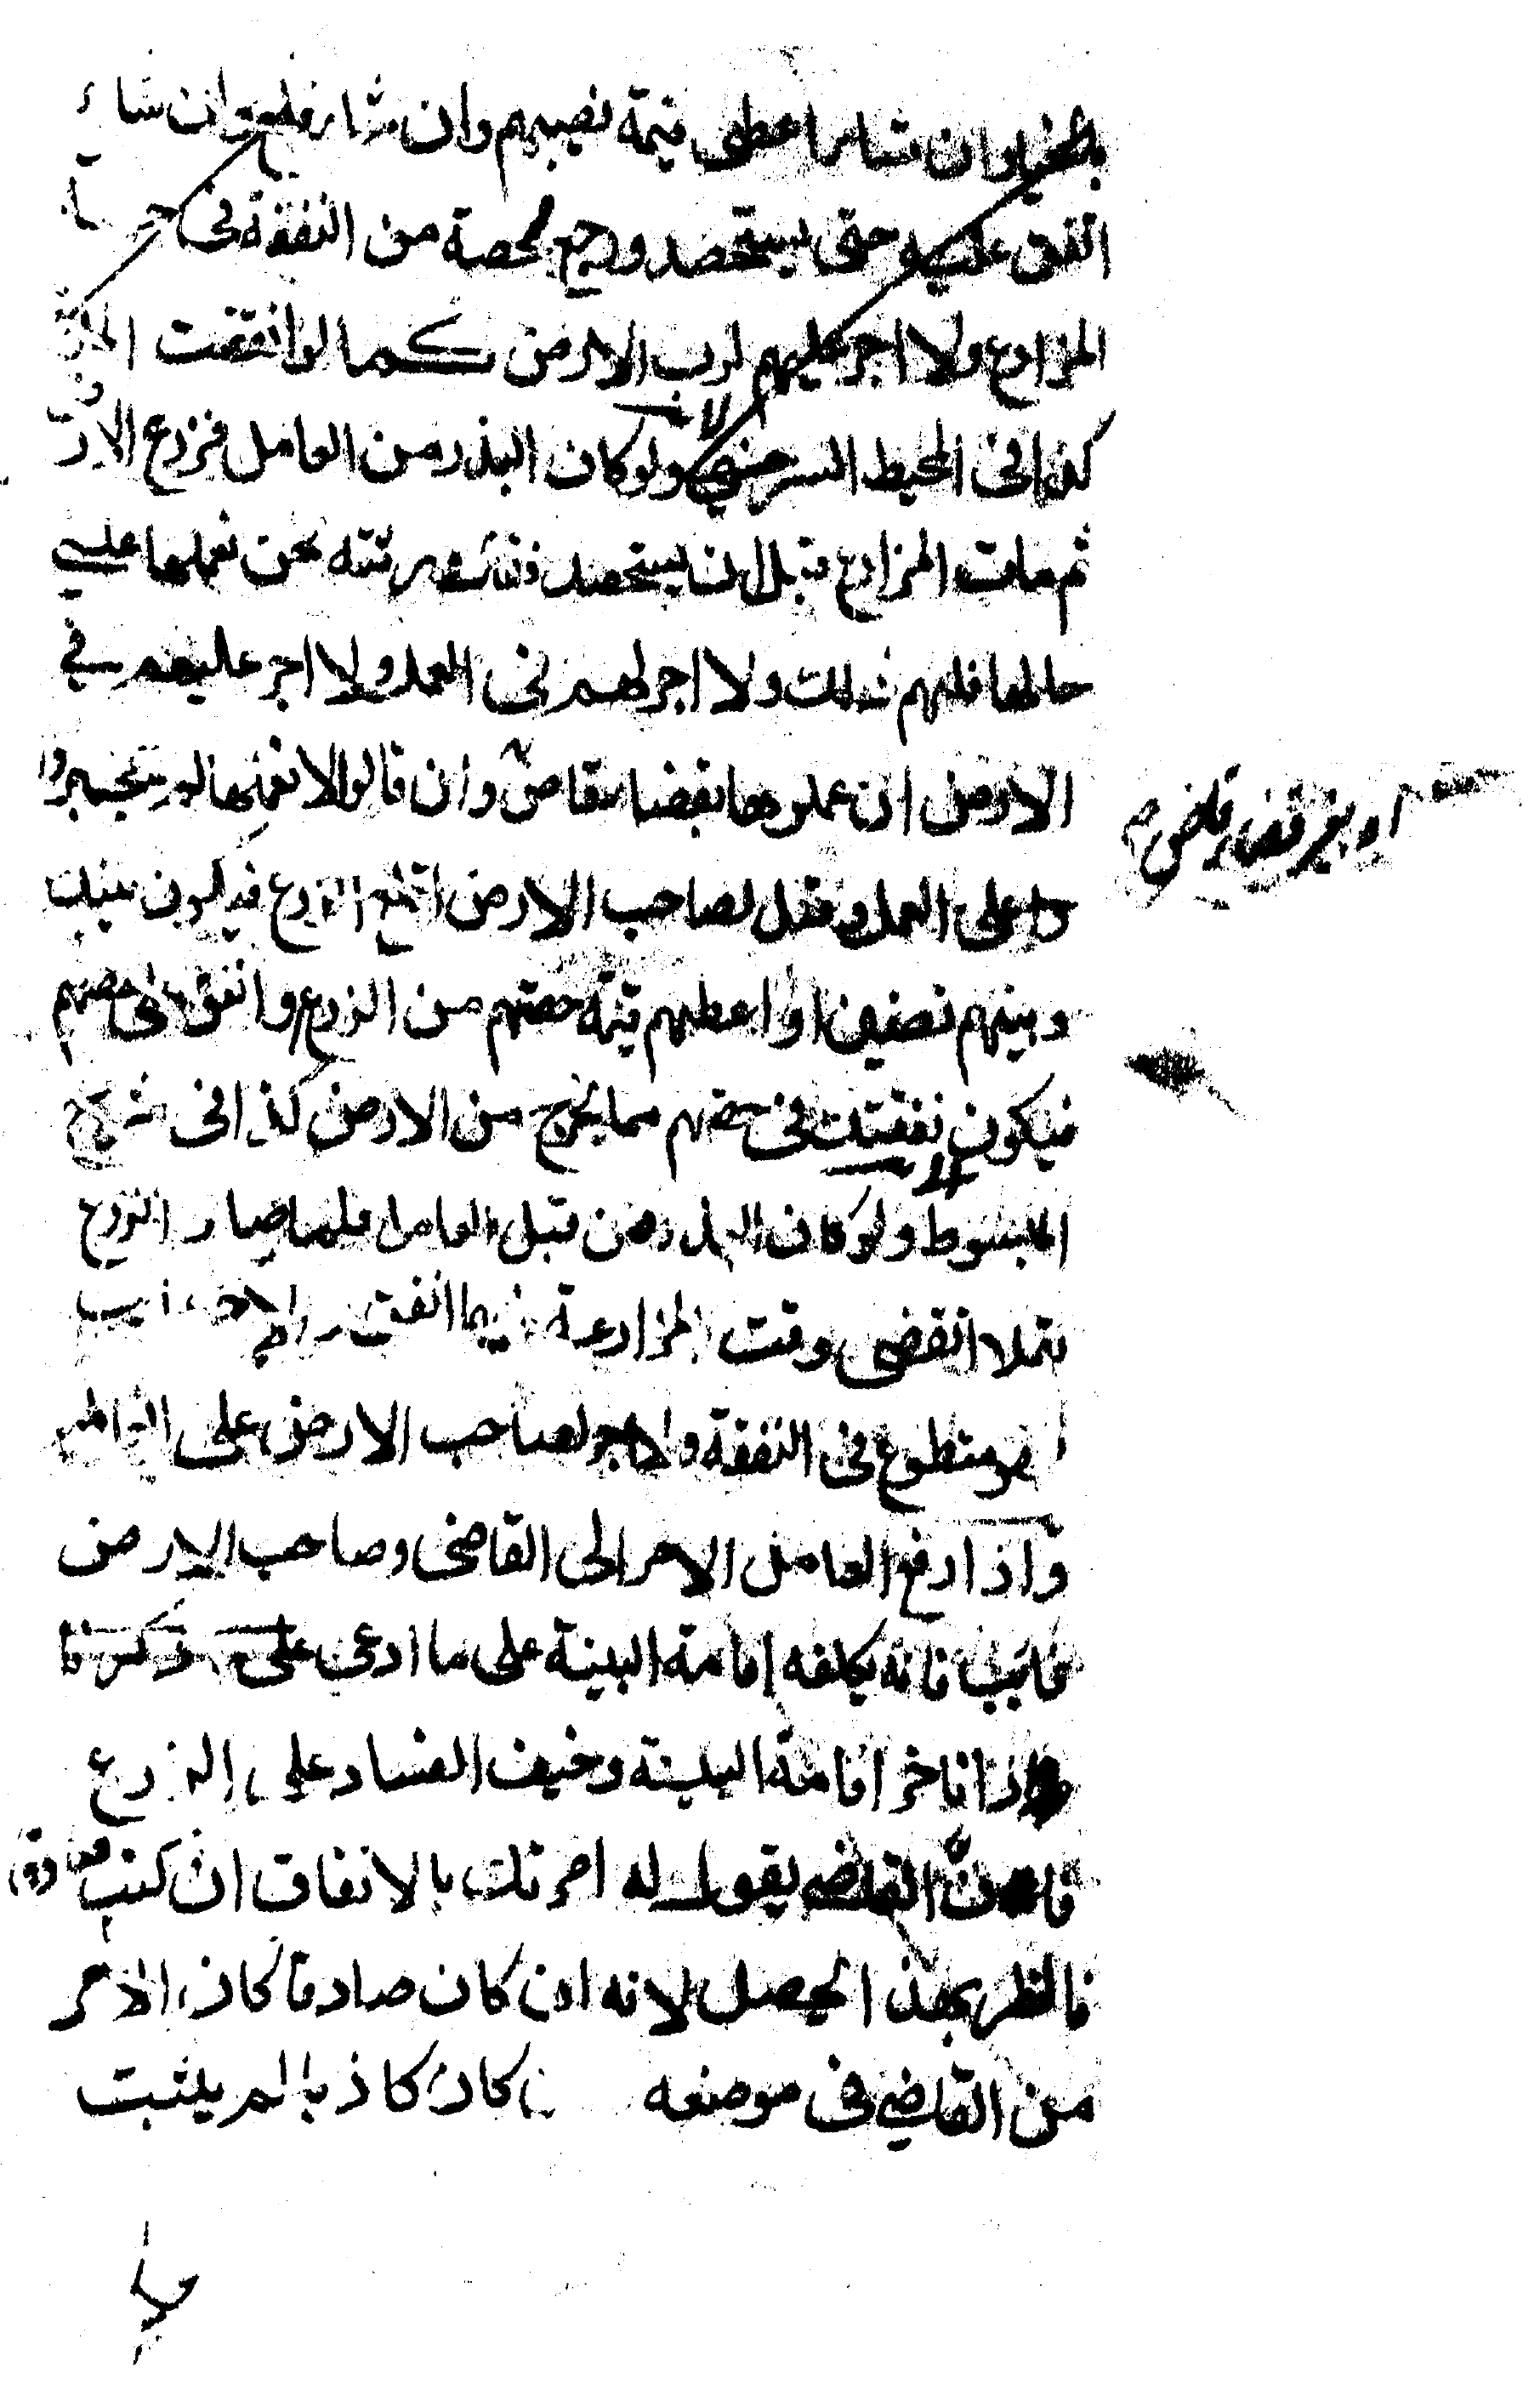 بالخيار ان شاء اعطى قيمة نصيبهم وان شاء قلع وان شاء
انفق عليه حتى يستحصد ورجع بحصة من النفقة فى حصة
المزارع ولا اجر عليهم لرب الارض كما لو انقضت المدة
كذا فى المحيط السرخسي ولو كان البذر من العامل فزرع الارض
ثم مات المزارع قبل ان يستحصد فقالت ورثته نحن نعملها على
حالها فلهم ذلك ولا اجر لهم فى العمل ولا اجر عليهم في
الارض ان عملوها بقضا قاض وان قالوا لا نعملها لم يجبروا
على العمل وقيل لصاحب الارض اقلع الزرع فيكون بينك
وبينهم نصفين او اعطهم قيمة حصتهم من الزرع وانفق على حصتهم
فيكون نفقتك فى حصتهم مما يخرج من الارض كذا فى شرح
المبسوط ولو كان البذر من قبل العامل فلما صار الزرع
بقلا انقضى وقت المزارعة فايهما انفق والاخر غايب
فهو متطوع فى النفقة ولا اجر لصاحب الارض على العامل
واذا رفع العامل الامر الى القاضى وصاحب الارض
غايب فانه يكلفه اقامة البينة على ما ادعى على ذكرنا
واذا تاخر اقامة البينة وخيف الفساد على الزرع
فان القاضى يقول له امرتك بالانفاق ان كنت صادقا
فالنظر بهذا يحصل لانه ان كان صادقا كان الامر
من القاضي فى موضعه وان كان كاذبا لم يثبت
او بغير قضاء قاض م